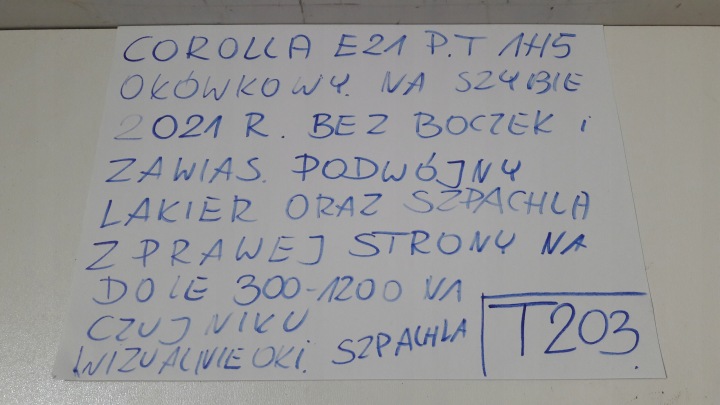 COROLLA E21 P.T 1H5
OKÓWKOWY. NA SZYBIE
2021 R. BEZ BOCZEK i
ZAWIAS. PODWÓJNY
LAKIER ORAZ SZPACHLA
Z PRAWEJ STRONY NA
DOLE 300-1200 NA
CZUJNIKU
WIZUALNIE OKi. SZPACHLA
T203.